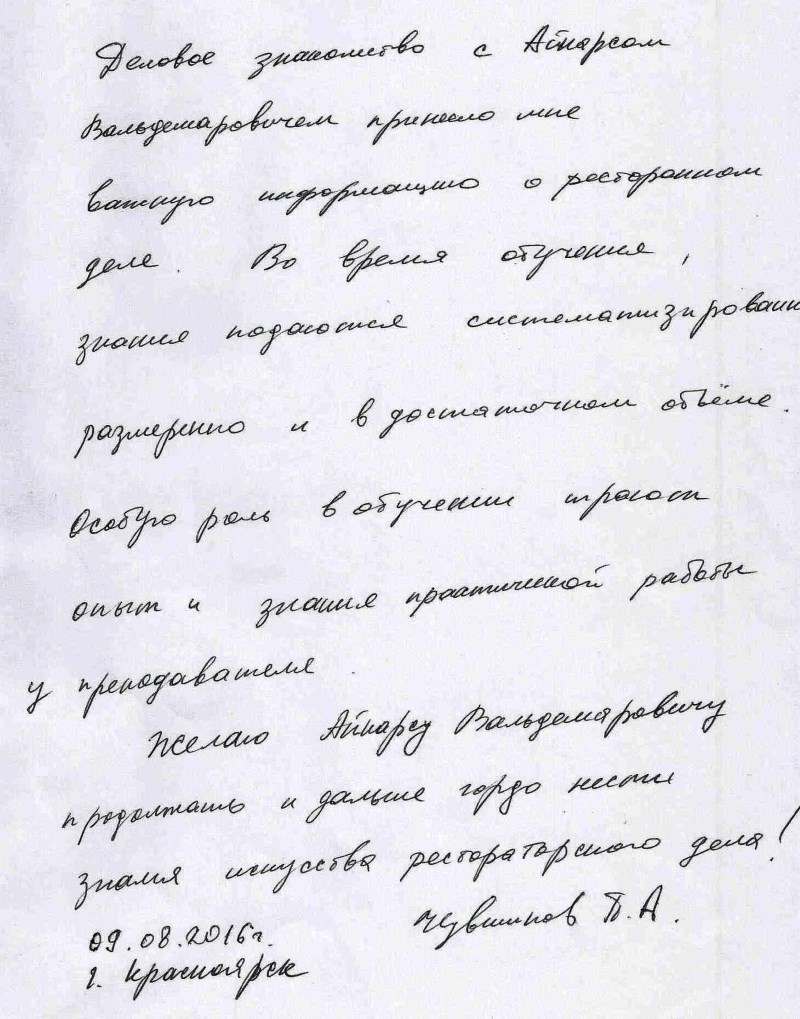 Деловое знакомство с Айнарсом
Вальдемаровичем принесло мне
важную информацию о ресторанном
деле. Во время обучения,
знания подаются систематизирован
размеренно и в достаточном объёме.
Особую роль в обучении играют
опыт и знания практической работы
у преподавателя.
Желаю Айнарсу Вальдемаровичу
продолжать и дальше гордо нести
знамя искусства рестораторского дела!
09.08.2016г. Чувшинов П.А.
г. Красноярск